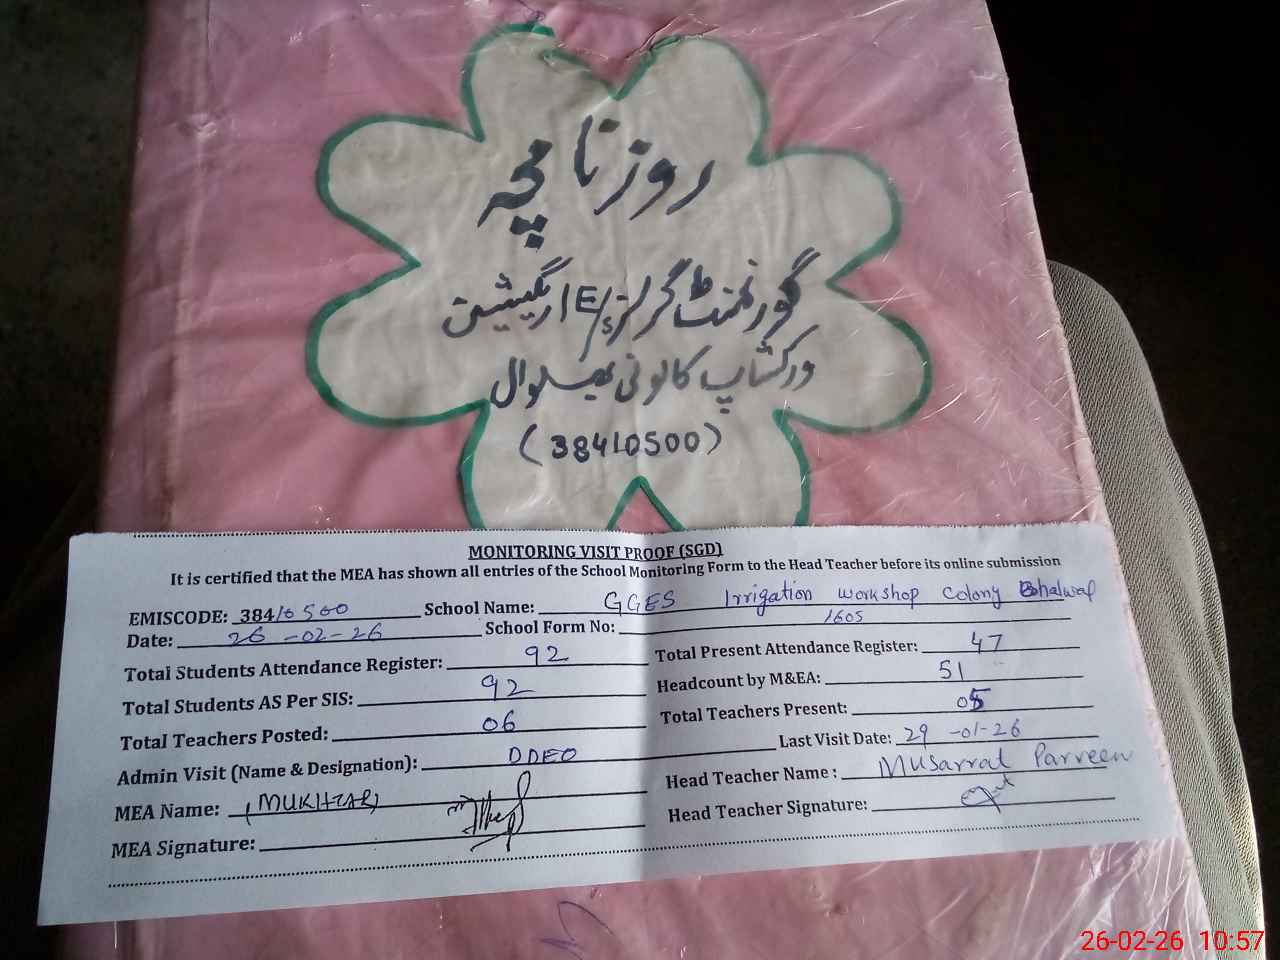 روزنامچہ
گورنمنٹ گرلز E/S اریگیشن
ورکشاپ کالونی بھلوال
(38410500)
MONITORING VISIT PROOF (SGD)
It is certified that the MEA has shown all entries of the School Monitoring Form to the Head Teacher before its online submission
EMISCODE: 38410500 School Name: GGES Irrigation workshop colony Bhalwal
Date: 26-02-26 School Form No: 1605
Total Students Attendance Register: 92 Total Present Attendance Register: 47
Total Students AS Per SIS: 92 Headcount by M&EA: 51
Total Teachers Posted: 06 Total Teachers Present: 05
Admin Visit (Name & Designation): DDEO Last Visit Date: 29-01-26
MEA Name: (MUKHTAR) Head Teacher Name: Musarrat Parveen
MEA Signature: Head Teacher Signature:
26-02-26 10:57